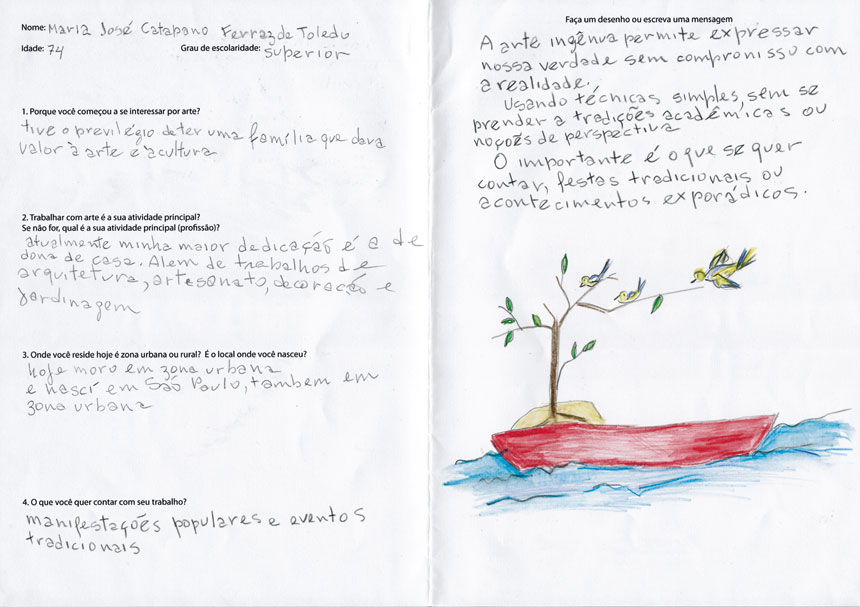 Nome: Maria José Catapano Ferraz de Toledo
Idade: 74 Grau de escolaridade: superior
1. Porque você começou a se interessar por arte?
tive o previlégio de ter uma família que dava
valor à arte e à cultura
2. Trabalhar com arte é a sua atividade principal?
Se não for, qual é a sua atividade principal (profissão)?
atualmente minha maior dedicação é a de
dona de casa. Alem de trabalhos de
arquitetura, artesanato, decoração e
jardinagem
3. Onde você reside hoje é zona urbana ou rural? É o local onde você nasceu?
hoje moro em zona urbana
e nascí em São Paulo, tambem em
zona urbana
4. O que você quer contar com seu trabalho?
manifestações populares e eventos
tradicionais
Faça um desenho ou escreva uma mensagem
A arte ingênua permite expressar
nossa verdade sem compromisso com
a realidade.
Usando técnicas simples, sem se
prender a tradições acadêmicas ou
noções de perspectiva
O importante é o que se quer
contar, festas tradicionais ou
acontecimentos exporádicos.